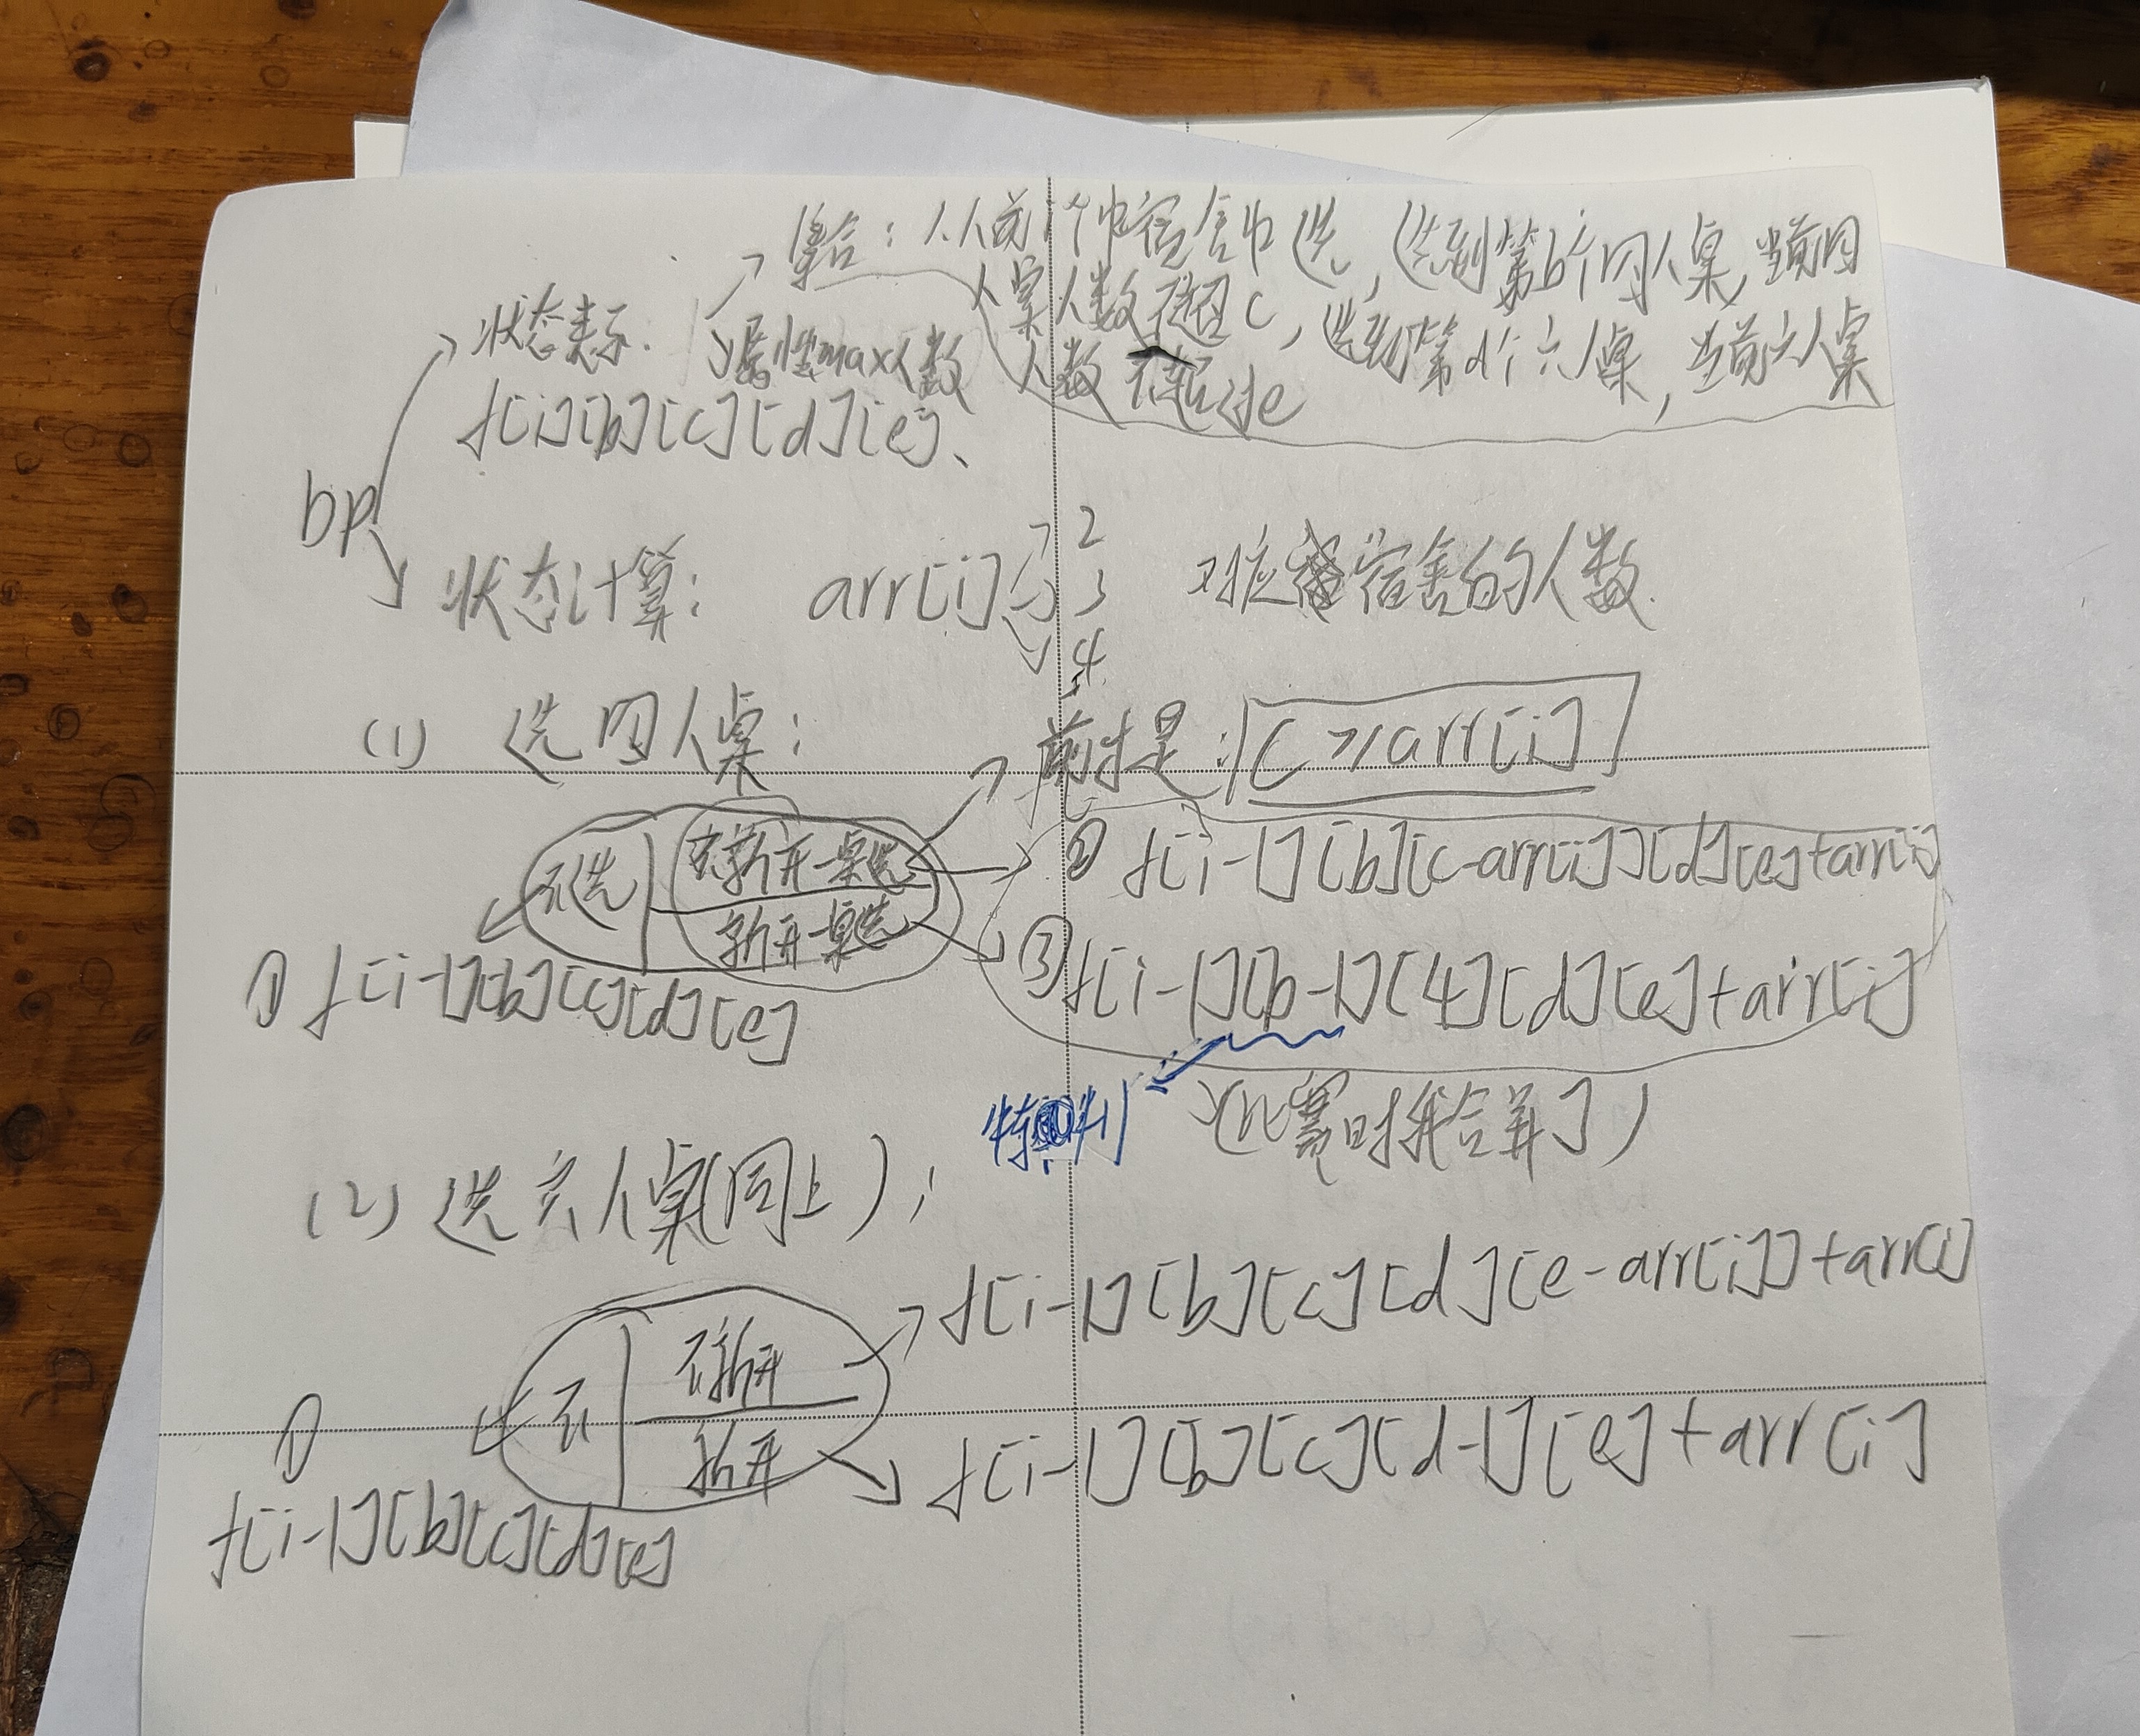 集合：从前i个中宿舍中选，选到第b个四人桌，当前四
人桌人数不超 c，选到第d个六人桌，当前六人桌
人数不超过e
状态表示：
属性max人数
f[i][b][c][d][e]、
bp
状态计算： arr[i] 2 3 4 对应宿舍的人数.
(1) 选四人桌：
前提是： C ≥ arr[i]
不选 不新开一桌选
新开一桌选
② f[i-1][b][c-arr[i]][d][e]+arr[i]
① f[i-1][b][c][d][e]
③ f[i-1][b-1][4][d][e]+arr[i]
特判
(比赛时我合并了)
(2) 选六人桌(同上)；
f[i-1][b][c][d][e-arr[i]]+arr[i]
不 不新开
新开
①
f[i-1][b][c][d-1][e]+arr[i]
f[i-1][b][c][d][e]